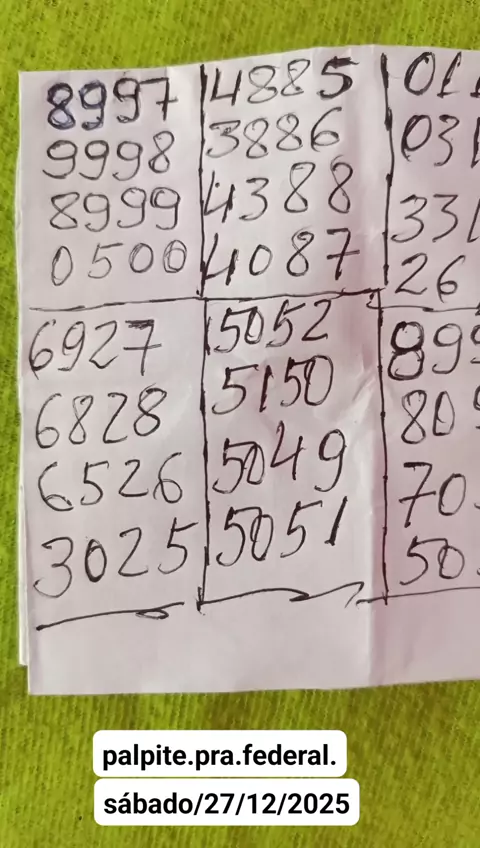 8997 4885 011
9998 3886 031
8999 4388 331
0500 4087 26
6927 5052 899
6828 5150 809
6526 5049 70
3025 5051 50
palpite.pra.federal.
sábado/27/12/2025